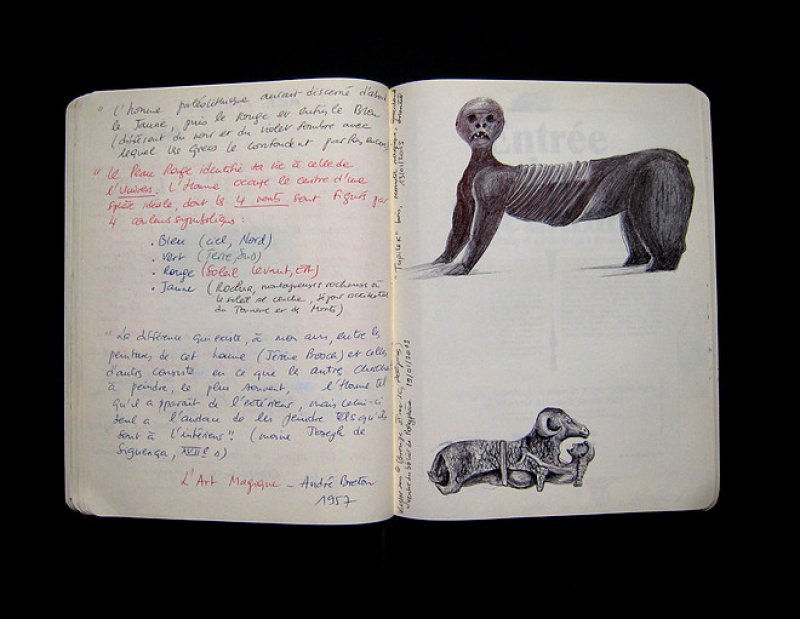 "L'homme paléolithique aurait discerné d'abord
le Jaune, puis le Rouge et enfin le Bleu
(différent du noir et du violet sombre avec
lequel les Grecs le confondent parfois encore)
"Le Peau Rouge identifie sa vie à celle de
l'Univers. L'Homme occupe le centre d'une
sphère idéale, dont les 4 vents sont figurés par
4 couleurs symboliques :
• Bleu (ciel, Nord)
• Vert (Terre, Sud)
• Rouge (Soleil levant, EST)
• Jaune (Rocheuses à
le soleil se couche, séjour occidental
du Tonnerre et de Morts)
"La différence qui existe, à mon avis, entre les
peintures de cet homme (Jérôme Bosch) et celles
d'autres consiste en ce que les autres cherchent
à peindre, le plus souvent, l'Homme tel
qu'il apparaît de l'extérieur, mais celui-ci
seul a l'audace de les peindre tels qu'ils
sont à l'intérieur". (moine Joseph de
Siguenza, XVIIe s)
L'Art Magique - André Breton
1957
"Tupilek" bois,
13/01/2013
19/01/2013
Entrée